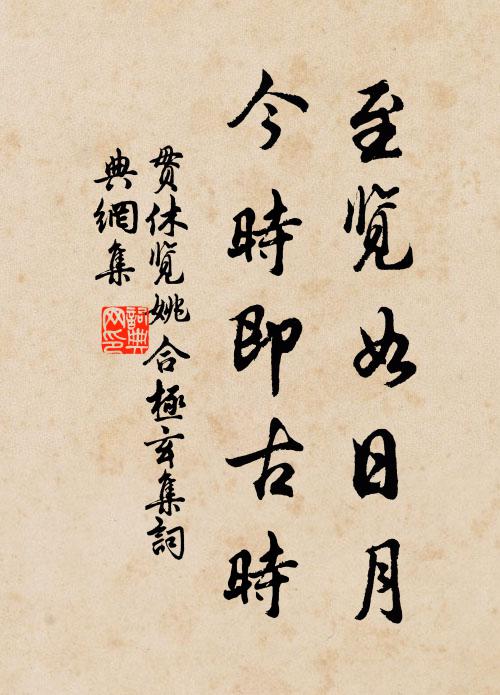 至览如日月
今時即古時
贯休览姚合極玄集詞
典網集
詞典网印